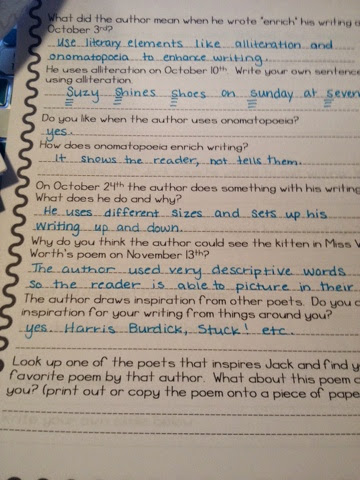 What did the author mean when he wrote "enrich" his writing o
October 3rd?
Use literary elements like alliteration and
onomatopoeia to enhance writing.
He uses alliteration on October 10th. Write your own sentenc
using alliteration.
Suzy Shines Shoes on sunday at seven
Do you like when the author uses onomatopoeia?
yes.
How does onomatopoeia enrich writing?
It shows the reader, not tells them.
On October 24th the author does something with his writing
What does he do and why?
He uses different sizes and sets up his
writing up and down.
Why do you think the author could see the kitten in Miss V
Worth's poem on November 13th?
The author used very descriptive words
so the reader is able to picture in their
The author draws inspiration from other poets. Do you d
inspiration for your writing from things around you?
yes. Harris Burdick, Stuck! etc.
Look up one of the poets that inspires Jack and find y
favorite poem by that author. What about this poem c
you? (print out or copy the poem onto a piece of pape